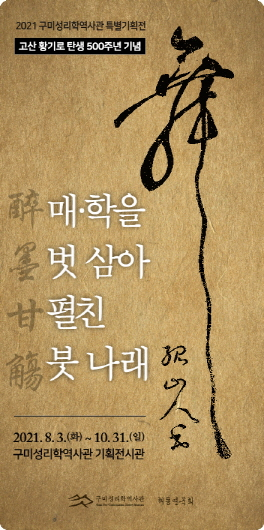 2021 구미성리학역사관 특별기획전
고산 황기로 탄생 500주년 기념
醉墨甘觴
매·학을
벗 삼아
펼친
붓 나래
2021. 8. 3.(화) ~ 10. 31.(일)
구미성리학역사관 기획전시관
구미성리학역사관